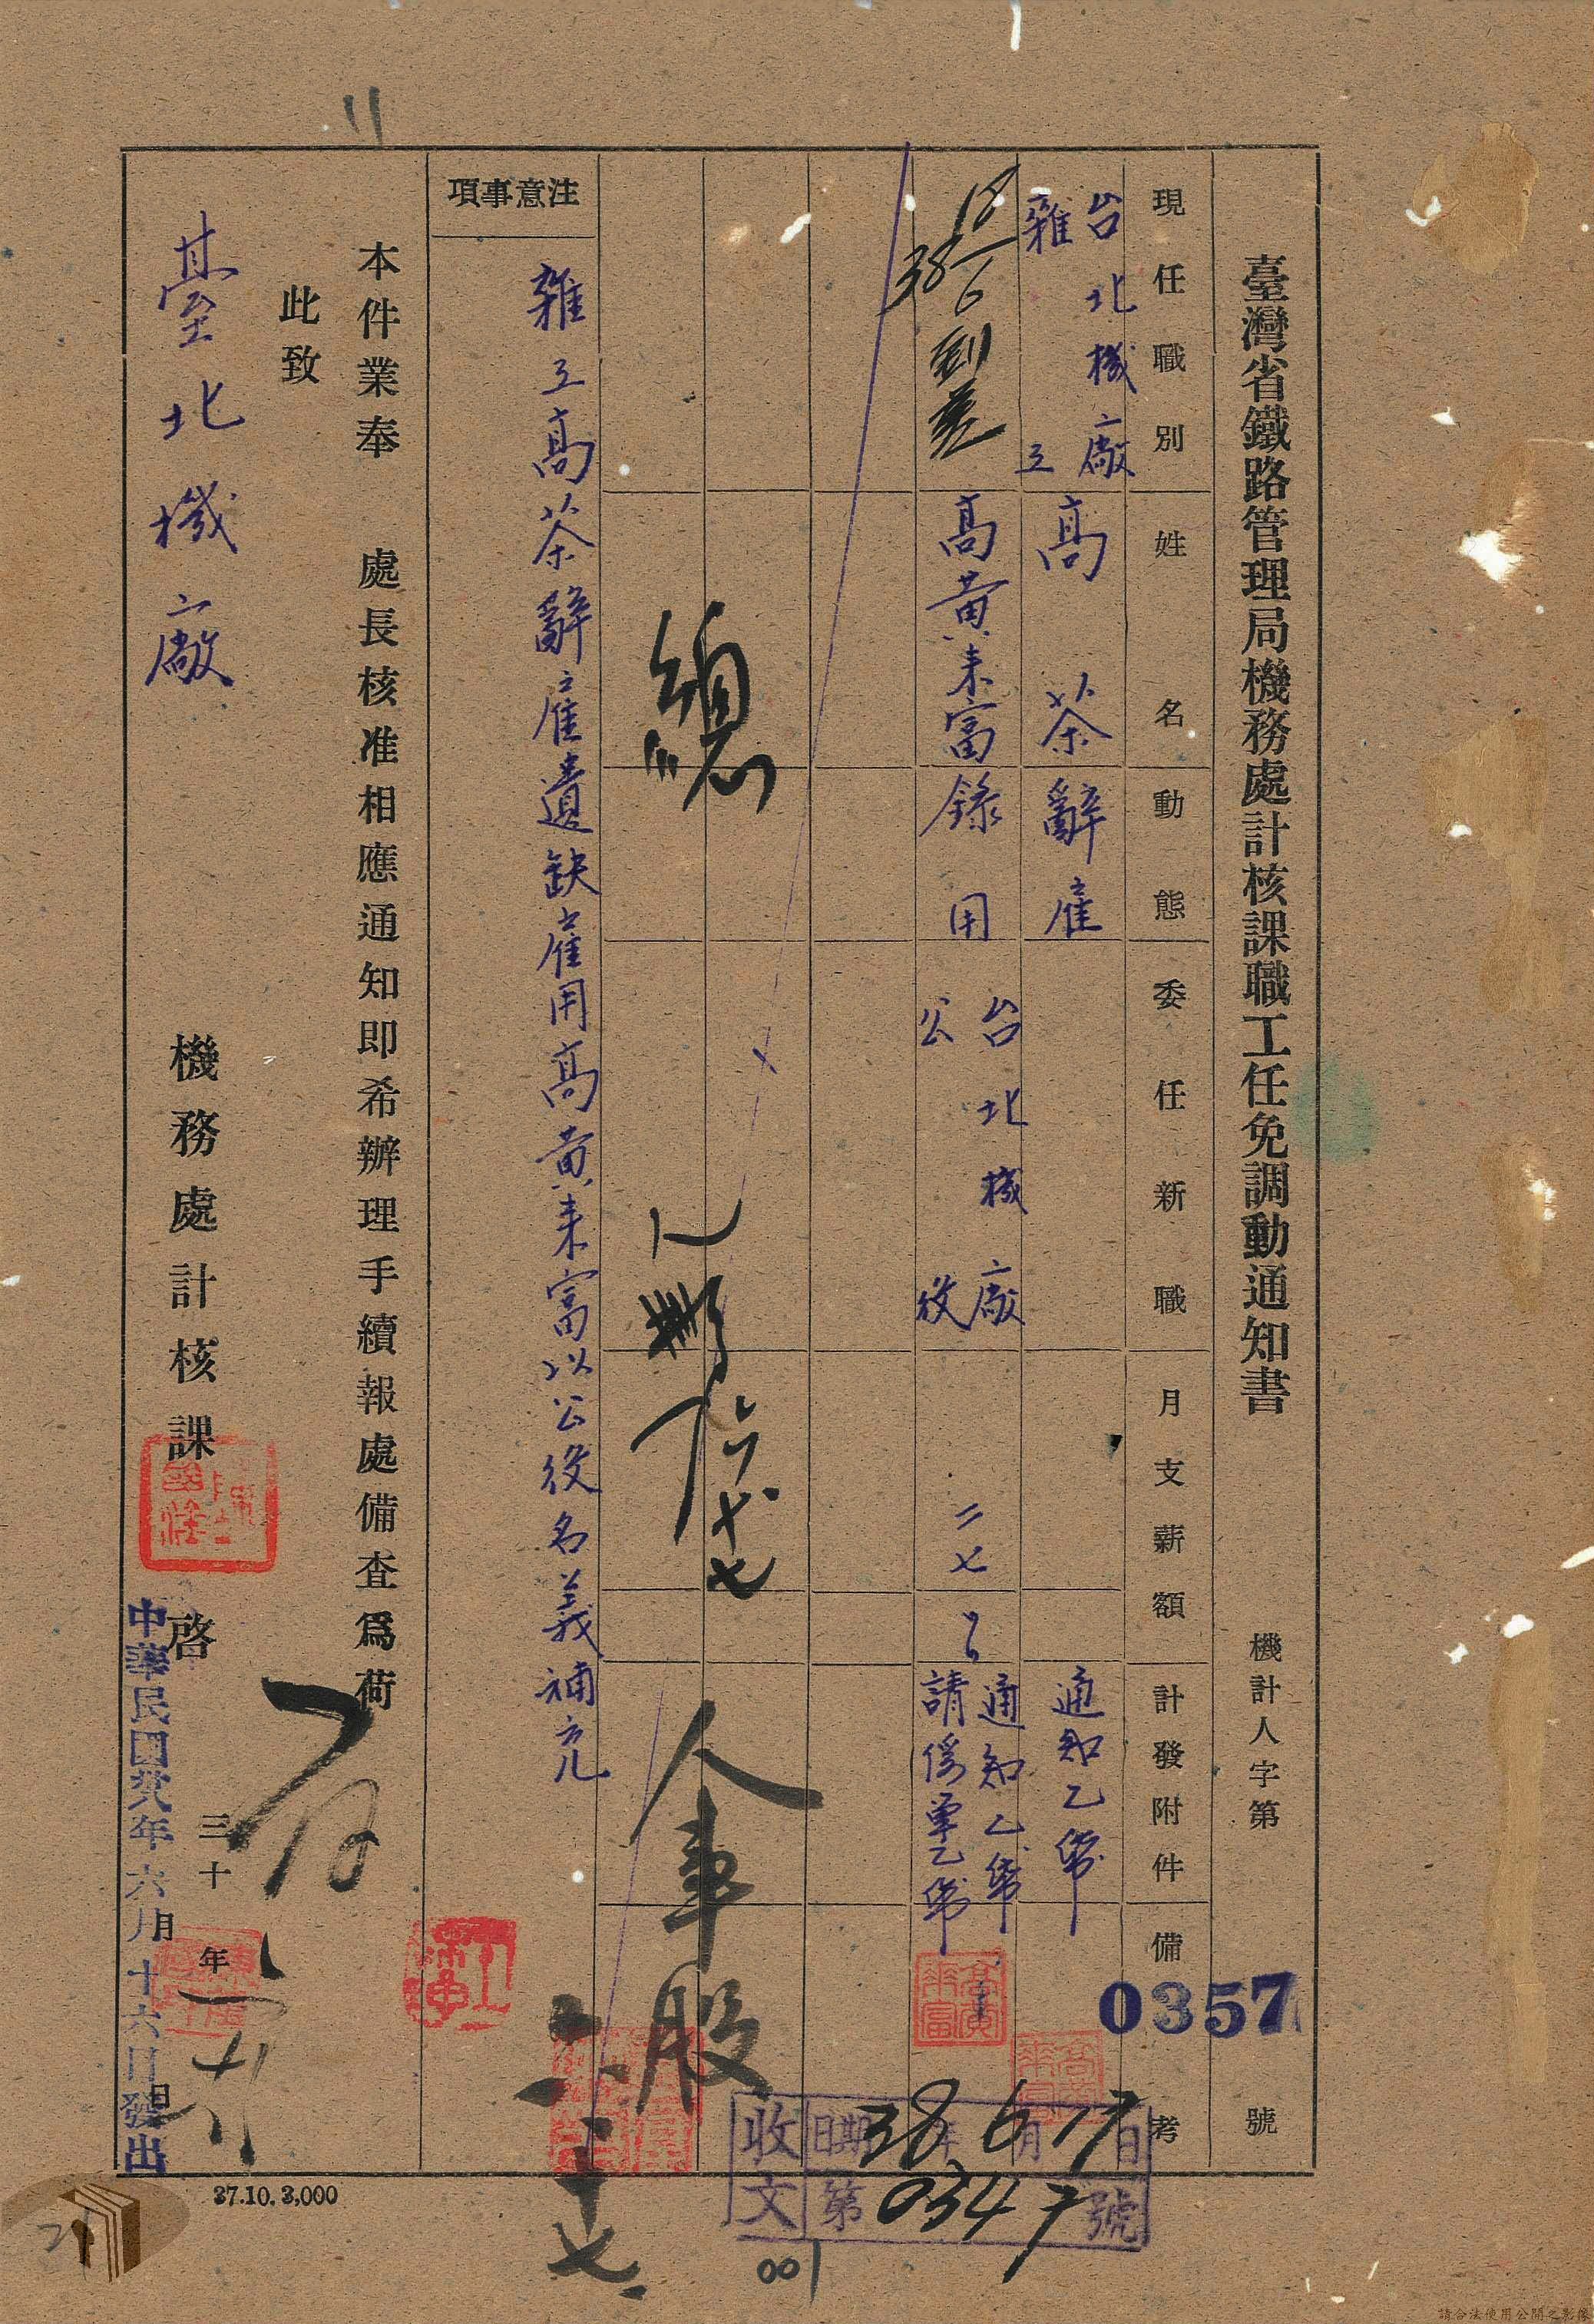 臺灣省鐵路管理局機務處計核課職工任免調動通知書
機計人字第 0357 號
現任職別 姓名 動態 委任新職 月支薪額 計發附件 備考
台北機廠 雜工 高茶 辭雇 通知乙帋
高黃來富 錄用 台北機廠 公役 二七 通知乙帋
38 6 到差
總
人事股
注意事項
雜工高茶辭雇遺缺雇用高黃來富以公役名義補充
本件業奉 處長核准相應通知即希辦理手續報處備查爲荷
此致
臺北機廠
機務處計核課 啓
三十 年 月 日
中華民國卅八年六月十六日發出
收文 日期 38年6月17日
第0347號
37.10.3,000
001
請合法使用公開之影像